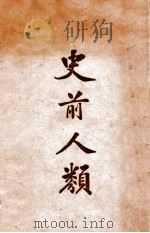 史前人類
mtoou.info